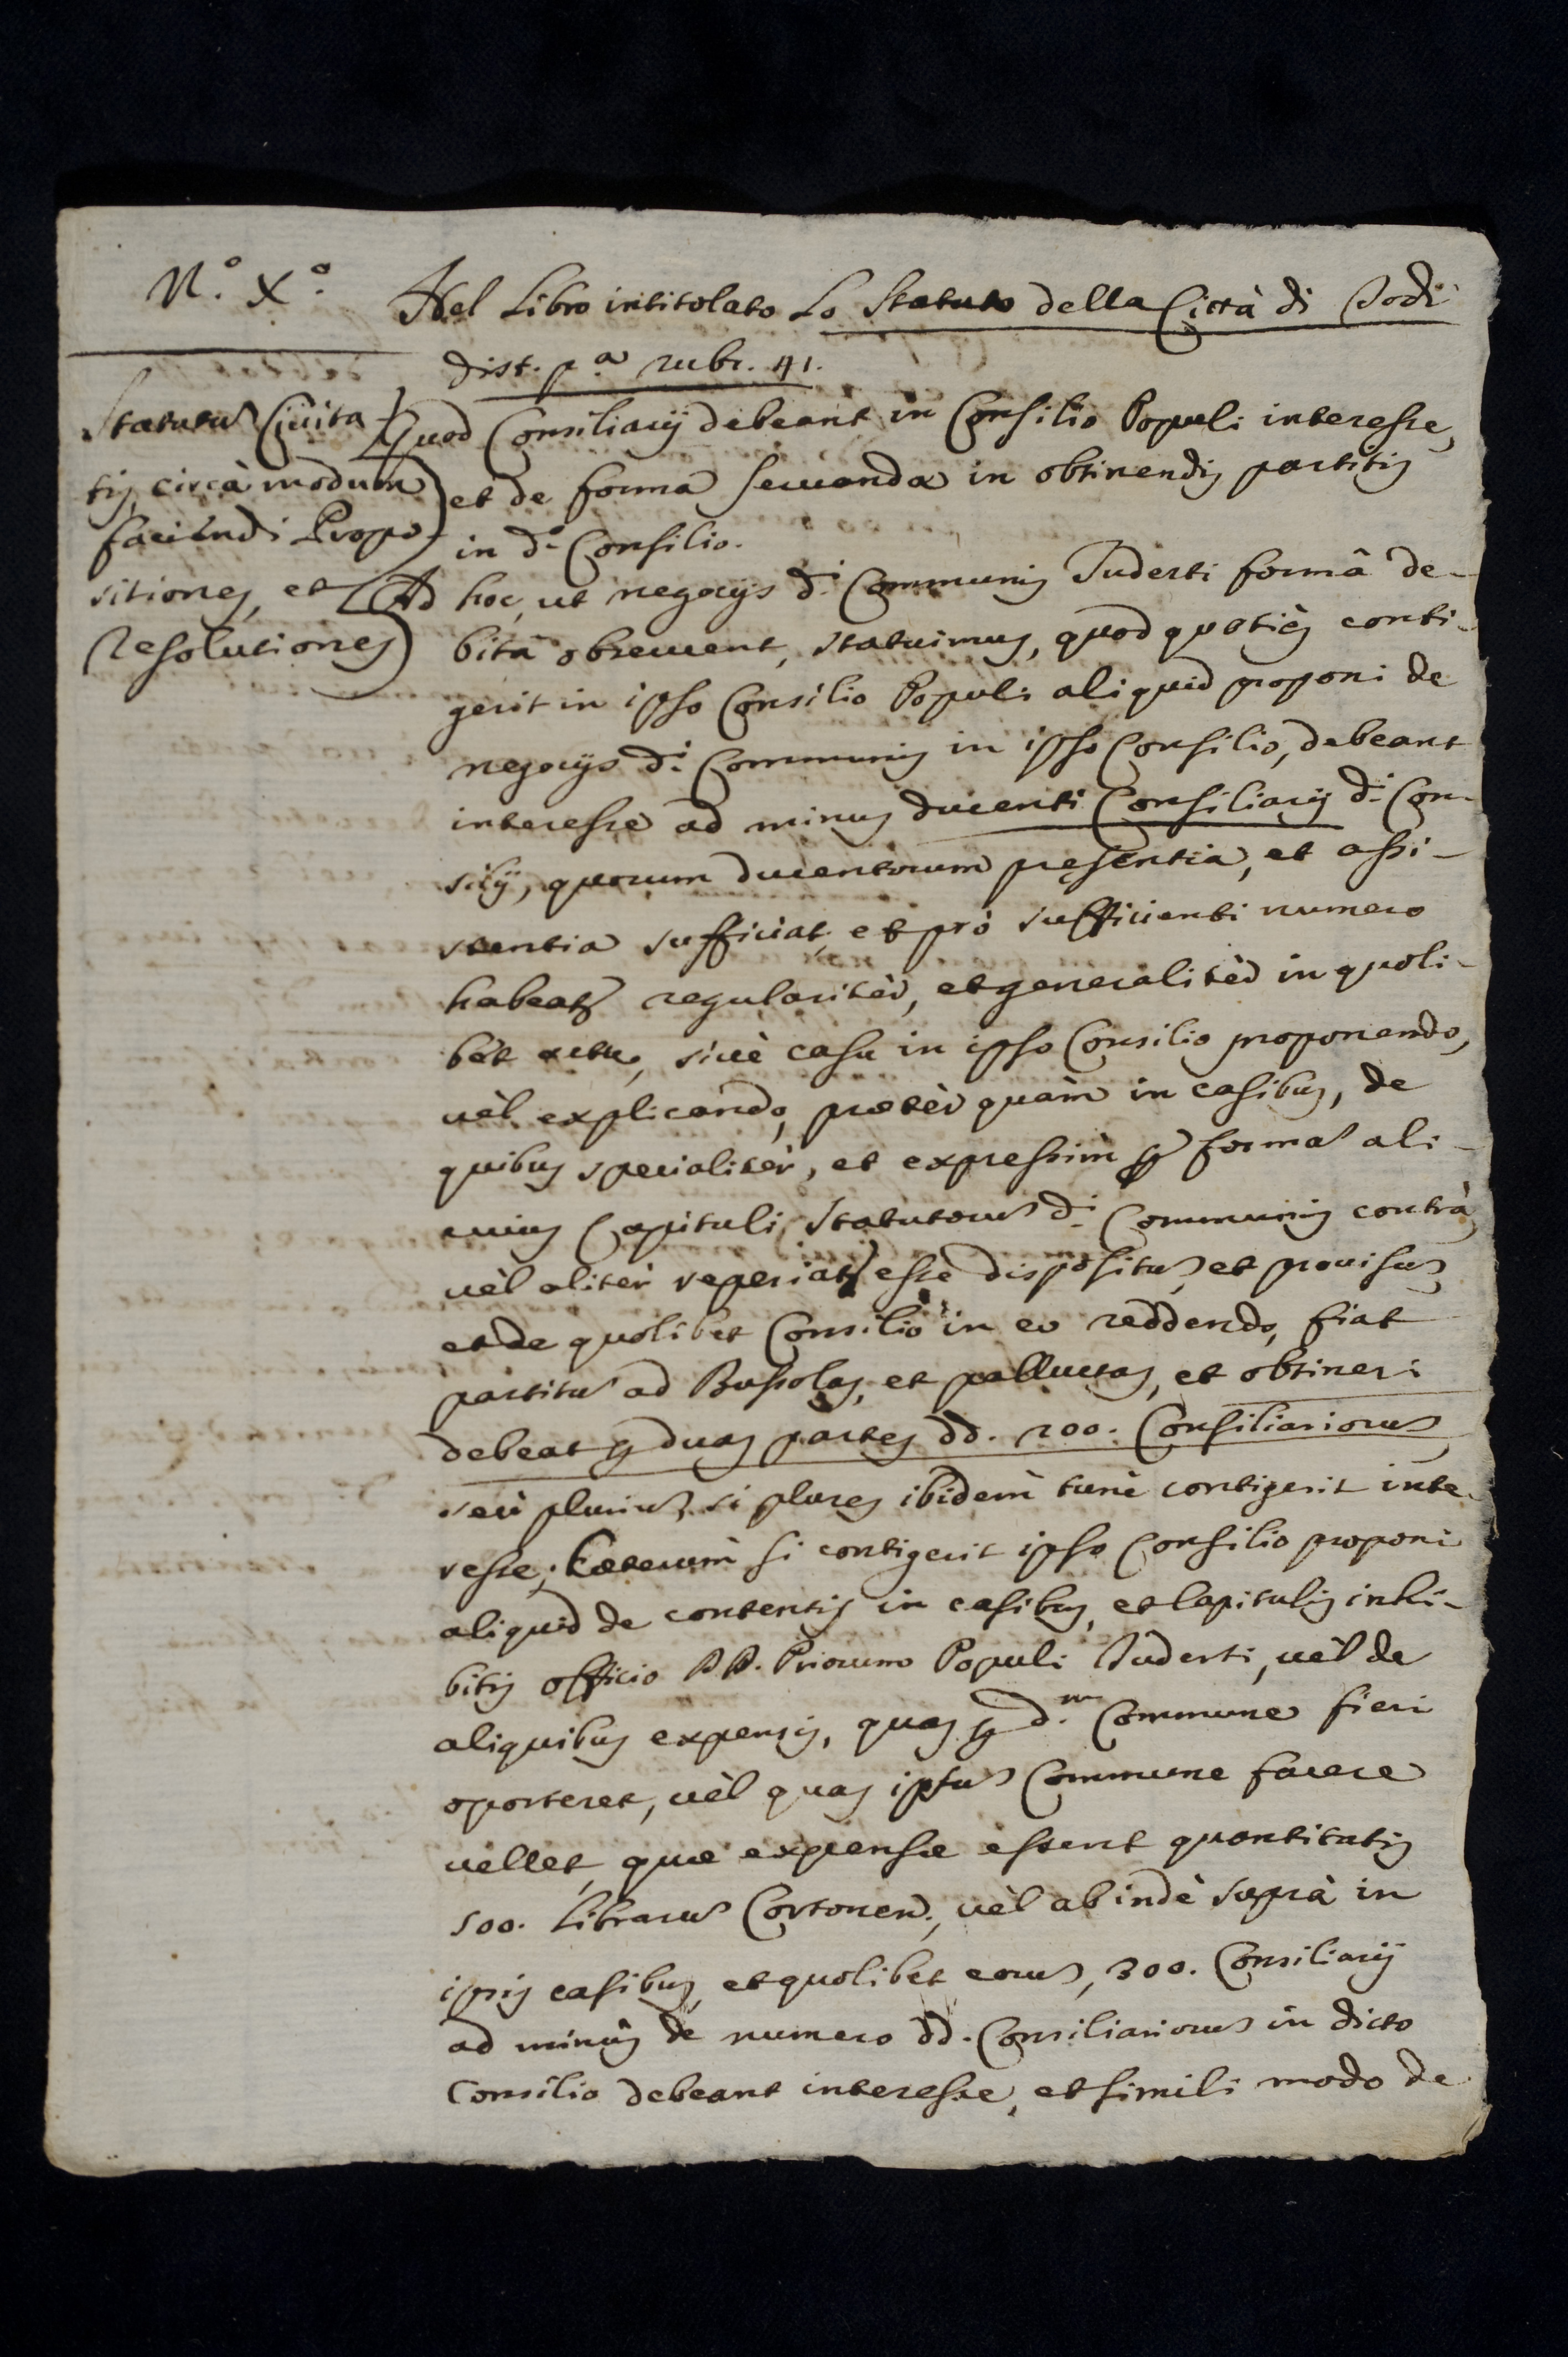 N.º Xº.
Statutũ Civita
tis circà modum
faciendi Propo
sitiones, et
Resolutiones
Nel Libro intitolato Lo Statuto della Città di Todi
dist. pª rubr. 41.
Quod Consiliarij debeant in Consilio Populi interesse,
et de forma servanda in obtinendis partitis
in dº Consilio.
Ad hoc, ut negocijs di Communis Tuderti formâ de-
bitâ observent, statuimus, quod quotiès conti-
gerit in ipso Consilio Populi aliquid proponi de
negocijs di Communis in ipso Consilio, debeant
interesse ad minus ducenti Consiliarij di Con-
silij, quorum ducentorum presentia, et assi-
stentia sufficiat, et prò sufficienti numero
habeatr regularitèr, et generalitèr in quoli-
bèt actu, sivè casu in ipso Consilio proponendo,
vèl explicando, præter quàm in casibus, de
quibus specialitèr, et expressim p formã ali-
cuius Capituli Statutorũ di Communis contrà,
vèl alitèr reperiatr esse dispositũ, et provisũ
et de quolibet Consilio in eo reddendo, fiat
partitũ ad Bussolas, et palluctas, et obtineri
debeat p duas partes dd. 200. Consiliariorũ,
seù pluriũ, si plures ibidem tunc contigerit inte-
resse; Cæterùm si contigerit ipso Consilio proponi
aliquid de contentis in casibus, et Capitulis inhi-
bitis officio DD. Priorum Populi Tuderti, vèl de
aliquibus expensis, quas p d.m Commune fieri
oporteret, vèl quas ipsũ Commune facere
vellet, quæ expensæ essent quantitatis
500. Librarũ Cortonen., vèl ab indè suprà in
ipsis casibus, et quolibet eorũ, 300. Consiliarij
ad minùs de numero dd. Consiliariorũ in dicto
Consilio debeant interesse, et simili modo de